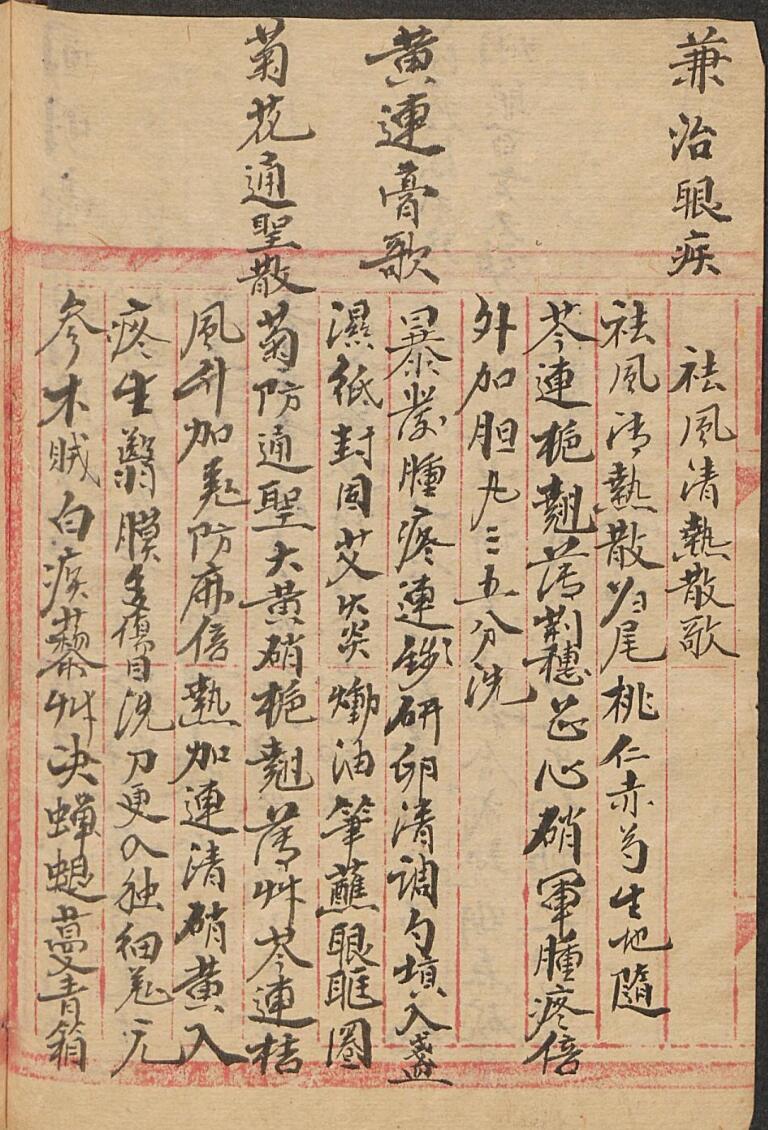 兼治眼疾
祛風清熱散歌
祛風清熱散归尾桃仁赤芍生地隨
芩連梔翹薄荆穗芷心硝軍腫疼倍
外加胆九三五分洗
黃連膏歌
暴發腫疼連研卵清調勻填入盞
濕紙封固艾炎油筆蘸眼眶圈
菊花通聖散
菊防通聖大黃硝梔翹薄艸芩連桔
風升加羗防麻倍熱加連清硝黃入
疼生翳膜多傷目洗刀更入独細羗元
參木賊白疾藜艸决蟬蛻蔓青箱